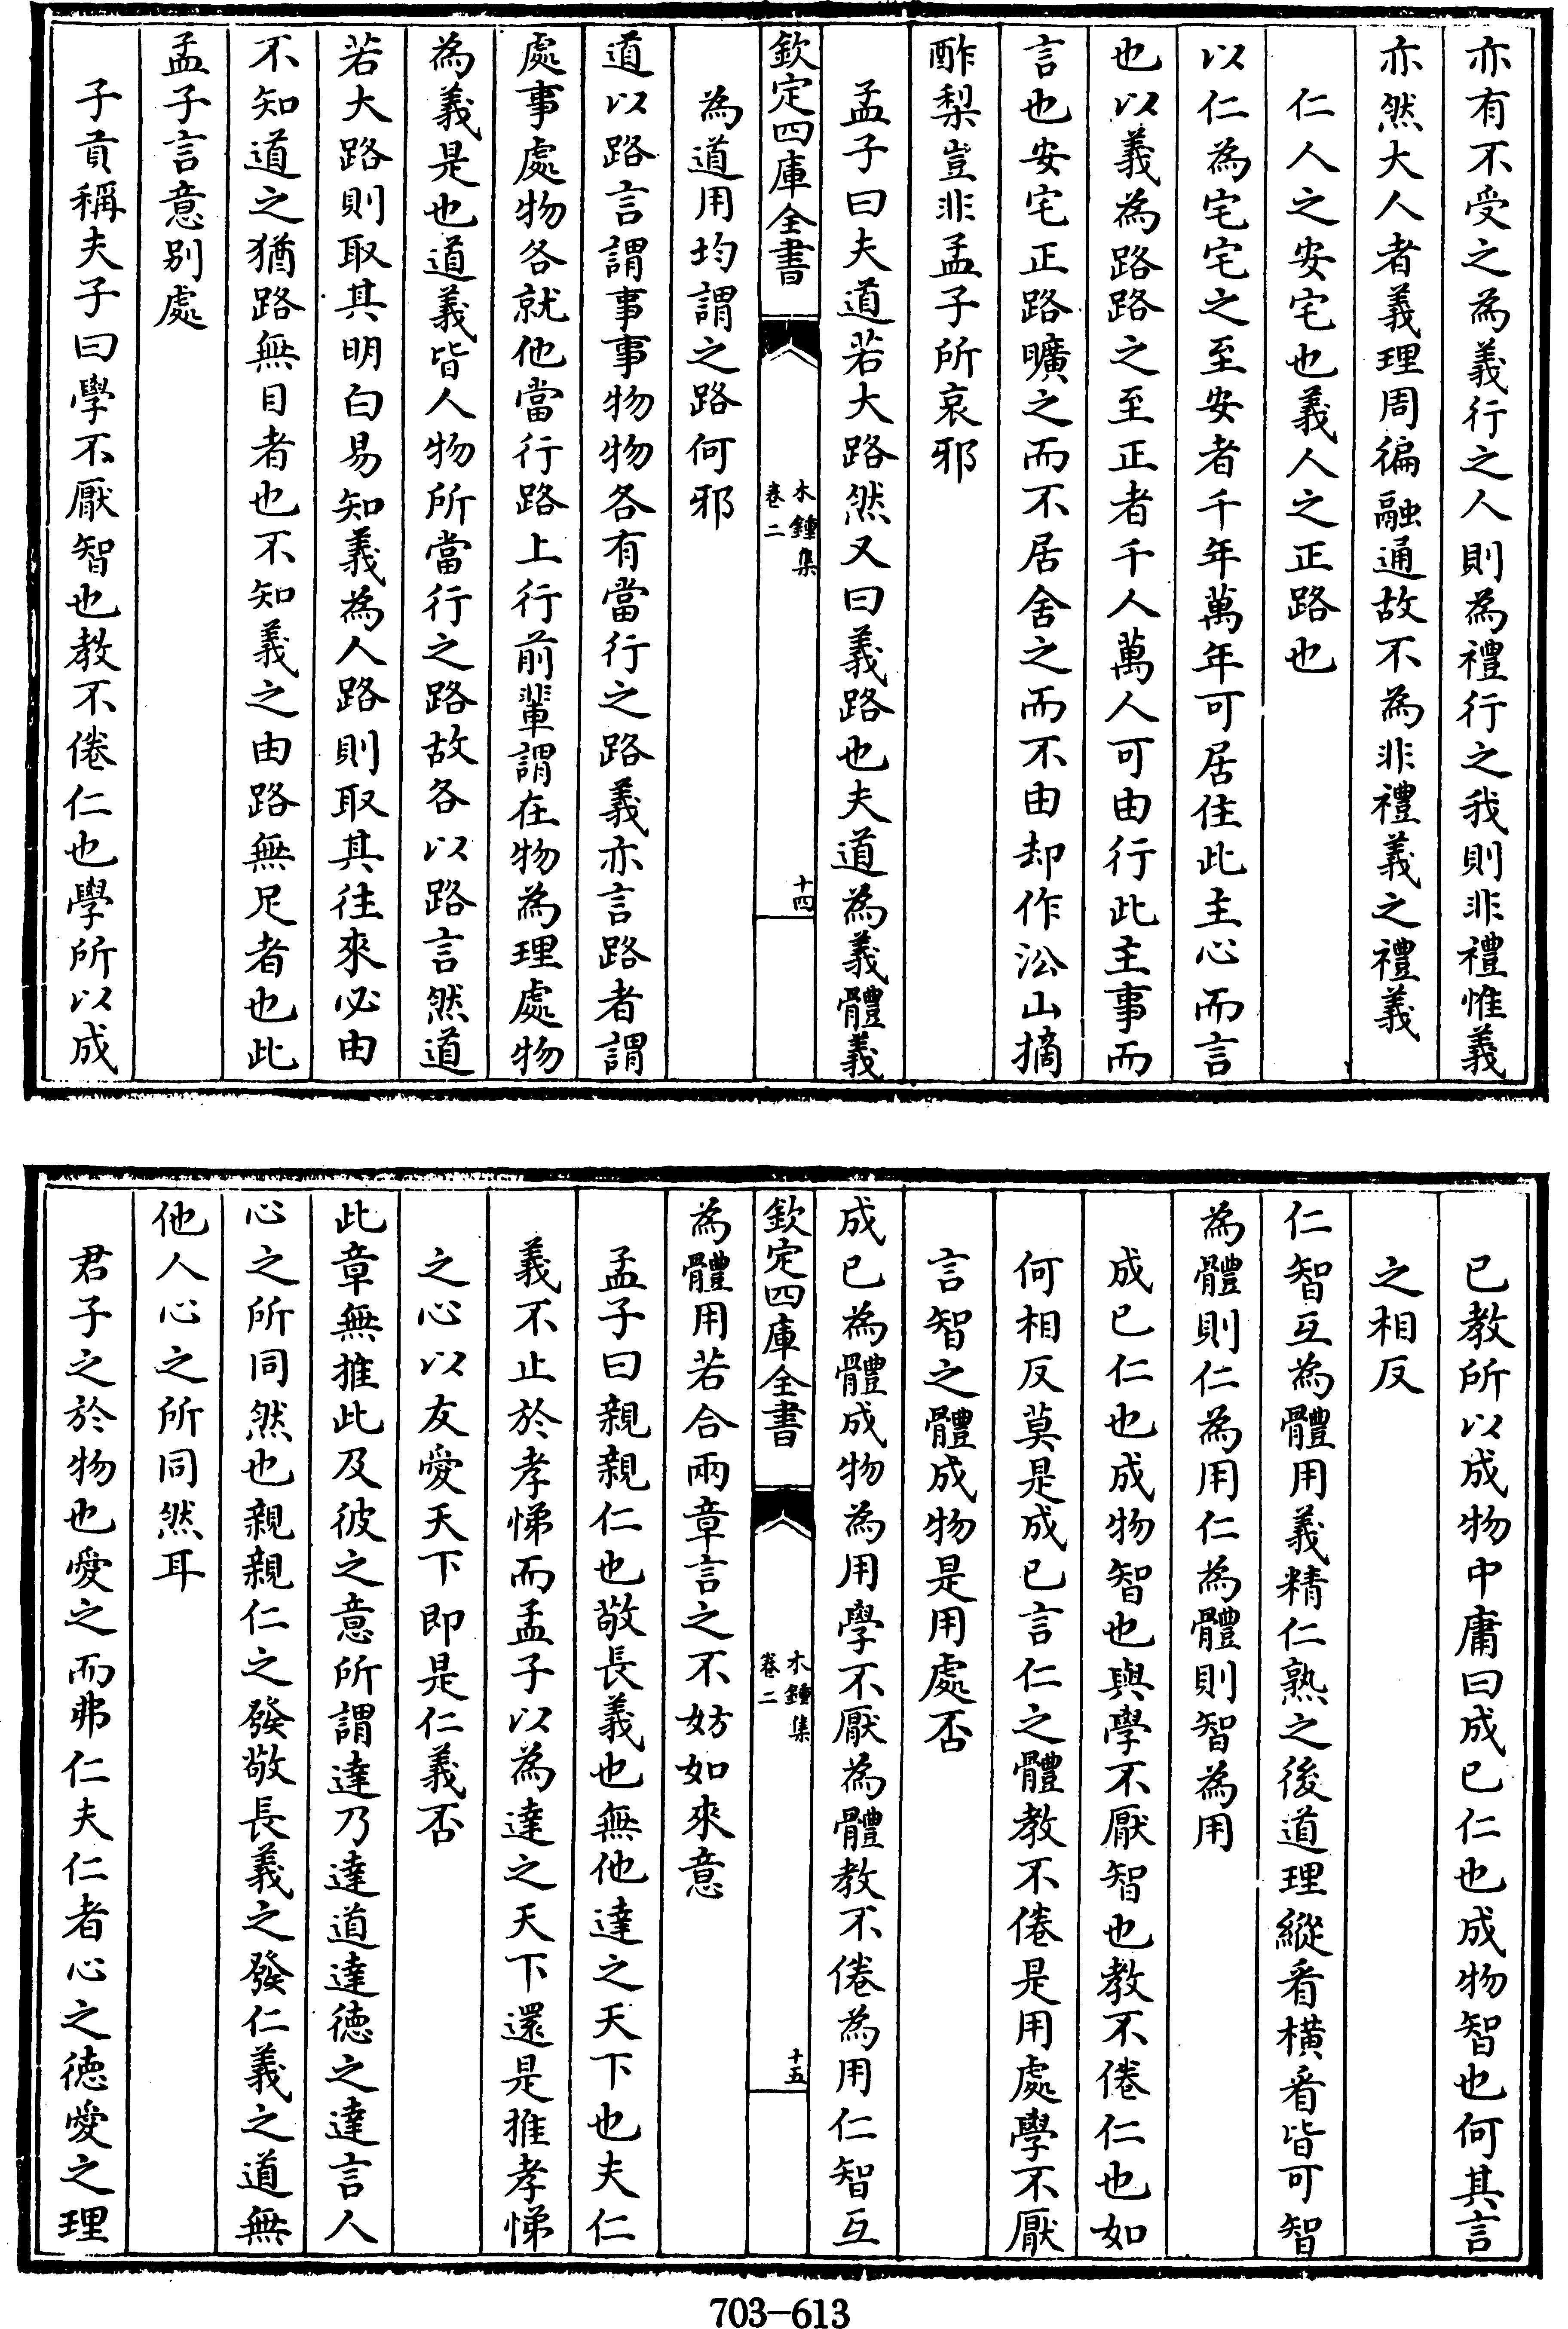 亦有不受之為義行之人則為禮行之我則非禮惟義
亦然大人者義理周徧融通故不為非禮義之禮義
仁人之安宅也義人之正路也
以仁為宅宅之至安者千年萬年可居住此主心而言
也以義為路路之至正者千人萬人可由行此主事而
言也安宅正路曠之而不居舍之而不由却作沿山摘
酢梨豈非孟子所哀邪
孟子曰夫道若大路然又曰義路也夫道為義體義
欽定四庫全書
木鍾集
卷二
十四
為道用均謂之路何邪
道以路言謂事事物物各有當行之路義亦言路者謂
處事處物各就他當行路上行前輩謂在物為理處物
為義是也道義皆人物所當行之路故各以路言然道
若大路則取其明白易知義為人路則取其往來必由
不知道之猶路無目者也不知義之由路無足者也此
孟子言意别處
子貢稱夫子曰學不厭智也教不倦仁也學所以成
已教所以成物中庸曰成已仁也成物智也何其言
之相反
仁智互為體用義精仁熟之後道理縱看橫看皆可智
為體則仁為用仁為體則智為用
成已仁也成物智也與學不厭智也教不倦仁也如
何相反莫是成已言仁之體教不倦是用處學不厭
言智之體成物是用處否
成已為體成物為用學不厭為體教不倦為用仁智互
欽定四庫全書
木鍾集
卷二
十五
為體用若合兩章言之不妨如來意
孟子曰親親仁也敬長義也無他達之天下也夫仁
義不止於孝悌而孟子以為達之天下還是推孝悌
之心以友愛天下即是仁義否
此章無推此及彼之意所謂達乃達道達德之達言人
心之所同然也親親仁之發敬長義之發仁義之道無
他人心之所同然耳
君子之於物也愛之而弗仁夫仁者心之德愛之理
703-613